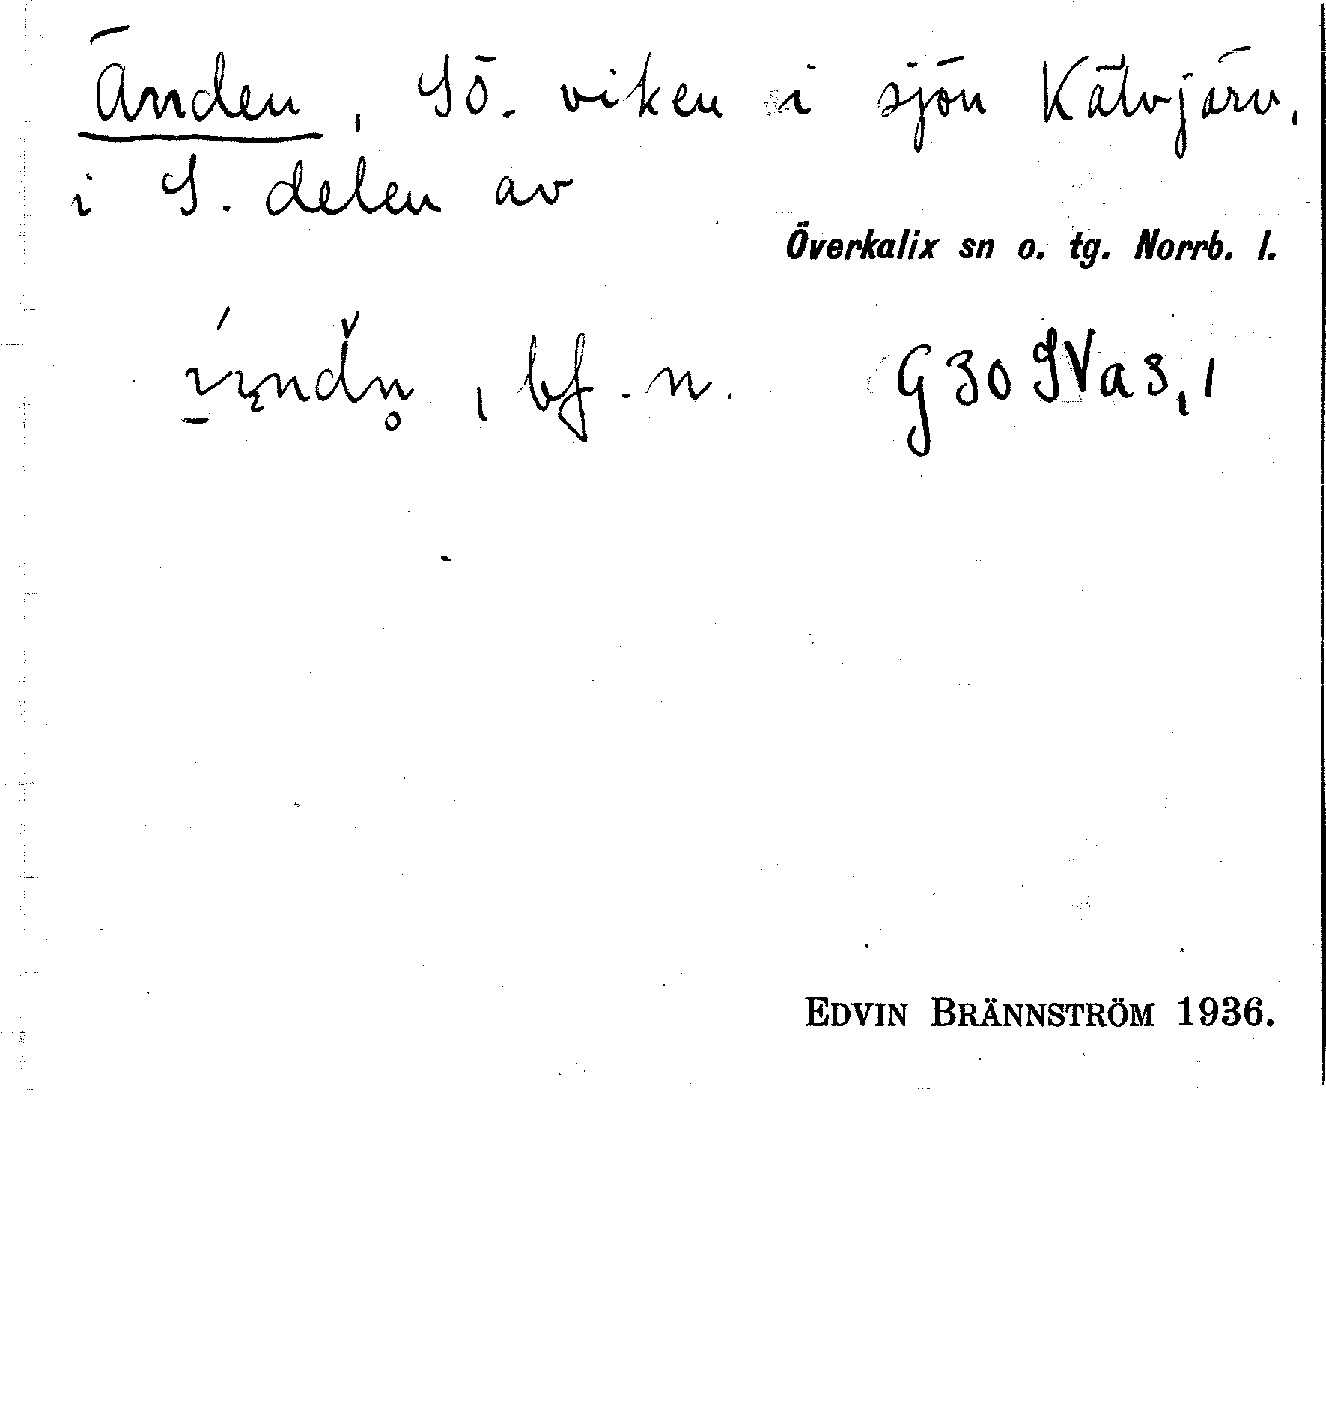 Änden, Sö. viken i sjön Kätvjärv.
i S. delen av
Överkalix sn o. tg. Norrb. l.
, bf. n. G 30 IV a 3, 1
EDVIN BRÄNNSTRÖM 1936.